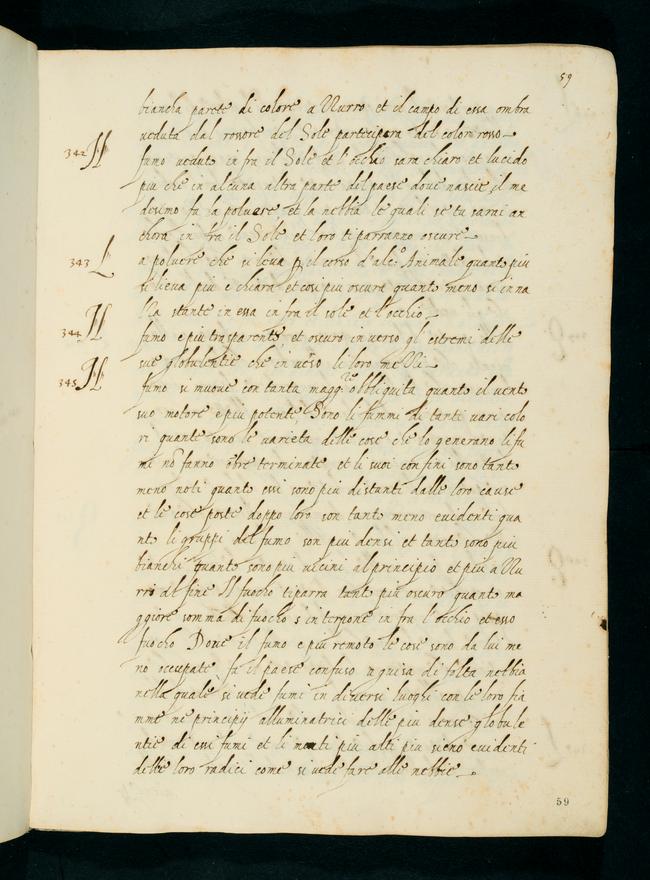 59
biancha parete di colore azzurro et il campo di essa ombra
ueduta dal rossore del Sole partecipera del color rosso
342 Il
fumo ueduto in fra il Sole et l'occhio sara chiaro et lucido
piu che in alcuna altra parte del paese doue nascie, il me
desimo fa la poluere, et la nebbia le quali se tu sarai an
chora in fra il Sole et loro ti parranno oscure
343 L
a poluere che si lieua p il corso d'alc.o Animale quanto piu
si lieua più e chiara et cosi piu oscura quanto meno si inna
lza stante in essa in fra il sole et l'occhio
344 Il
fumo e piu trasparente, et oscuro inuerso gli estremi delle
sue globulentie che in uerso li loro mezzi
345 Il
fumo si muoue con tanta magg.re obbliquita quanto il uento
suo motore e più potente Sono li fummi di tanti vari colo
ri quante sono le varieta delle cose che lo generano li fu
mi nõ fanno õbre terminate et li suoi confini sono tanto
meno noti quanto essi sono più distanti dalle loro cause
et le cose poste doppo loro son tanto meno euidenti qua
nto li gruppi del fumo son più densi et tanto sono più
bianchi quanto sono più uicini al principio et più azzu
rri al fine Il fuocho ti parra tanto più oscuro quanto ma
ggiore somma di fuocho s'interpone in fra l'occhio et esso
fuocho Doue il fumo e più remoto le cose sono da lui me
no occupate fa il paese confuso a guisa di folta nebbia
nella quale si uede fumi in diuersi luoghi con le loro fia
mme ne principij alluminatrici delle più dense globule
ntie di essi fumi et li monti più alti piu sieno euidenti
delle loro radici come si uede fare alle nebbie
59